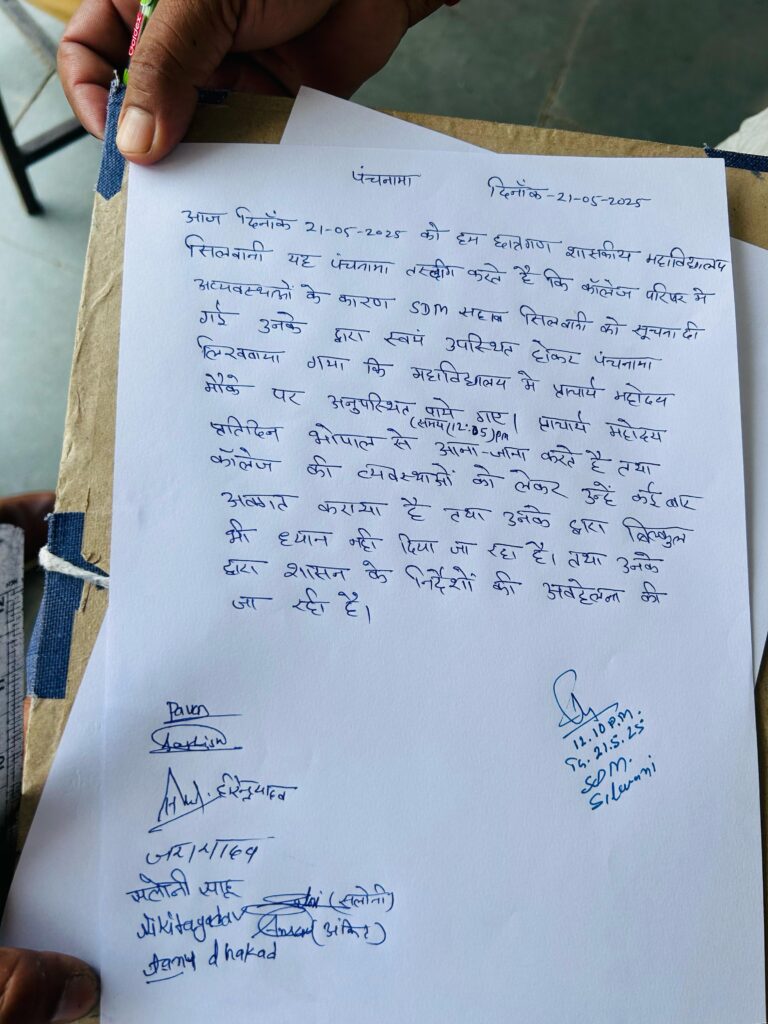 Goldex
पंचनामा दिनाँक-21-05-2025
आज दिनाँक 21-05-2025 को हम छात्रगण शासकीय महाविद्यालय
सिलवानी यह पंचनामा तस्दीग करते है कि कॉलेज परिषर मे
अव्यवस्थाओं के कारण SDM सहाब सिलवानी को सूचना दी
गई उनके द्वारा स्वयं उपस्थित होकर पंचनामा
लिखवाया गया कि महाविद्यालय मे प्राचार्य महोदय
मौके पर अनुपस्थित पाये गाए। प्राचार्य महोदय
(समय(12:05)pm
प्रतिदिन भोपाल से आना-जाना करते है तथा
कॉलेज की व्यवस्थाओं को लेकर उन्हें कई बार
अवगत कराया है तथा उनके द्वारा बिल्कुल
भी ध्यान नही दिया जा रहा है। तथा उनके
द्वारा शासन के निर्देशों की अवहेलना की
जा रही है।
Pavan
हरिन्द्र यादव
सलोनी साहू
(सलोनी)
Nikitayadav
(अंकित)
dhakad
12.10 P.M.
21.5.25
SDM.
Silwani